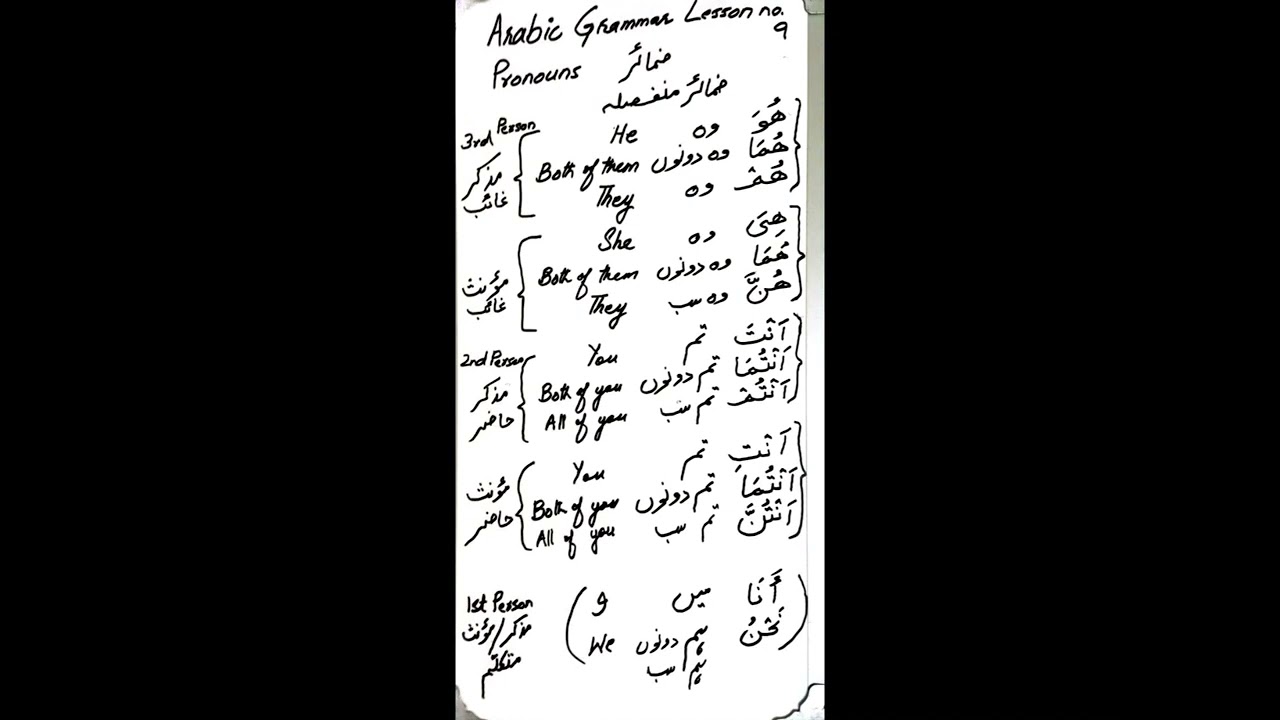 Arabic Grammar Lesson no. 9
Pronouns ضمائر
ضمائر منفصلہ
3rd Person
مذکر
غائب
He وہ هُوَ
Both of them وہ دونوں هُمَا
They وہ هُمْ
مؤنث
غائب
She وہ هِیَ
Both of them وہ دونوں هُمَا
They وہ سب هُنَّ
2nd Person
مذکر
حاضر
You تم اَنْتَ
Both of you تم دونوں اَنْتُمَا
All of you تم سب اَنْتُمْ
مؤنث
حاضر
You تم اَنْتِ
Both of you تم دونوں اَنْتُمَا
All of you تم سب اَنْتُنَّ
1st Person
مذکر/مؤنث
متکلم
I میں أَنَا
We ہم دونوں نَحْنُ
ہم سب